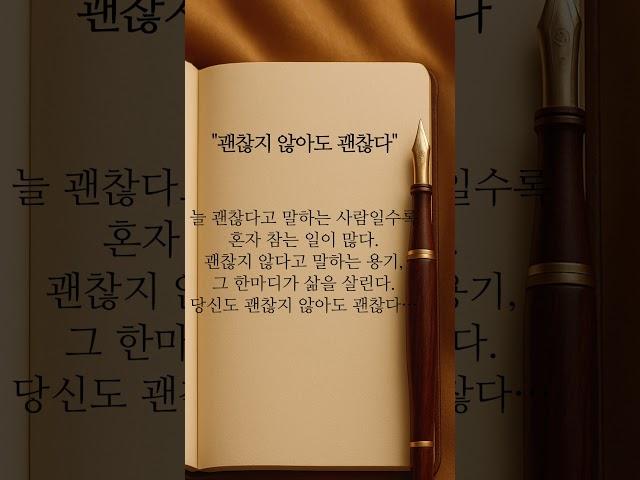 "괜찮지 않아도 괜찮다"
늘 괜찮다고 말하는 사람일수록
혼자 참는 일이 많다.
괜찮지 않다고 말하는 용기,
그 한마디가 삶을 살린다.
당신도 괜찮지 않아도 괜찮다…